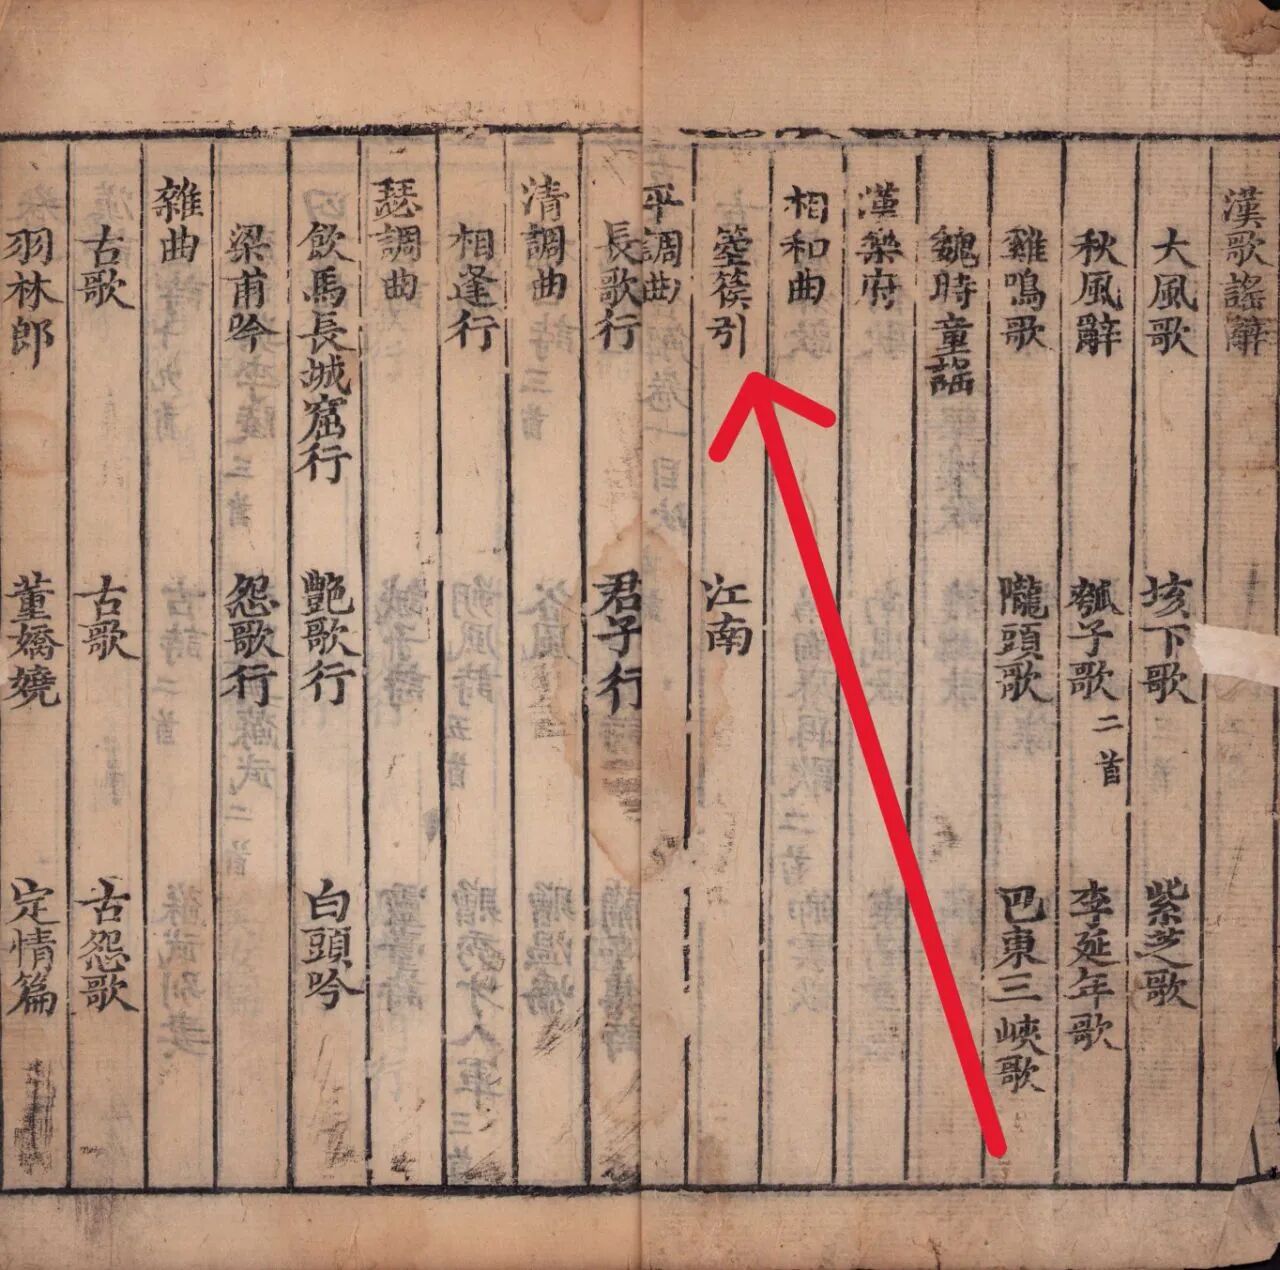 漢歌謠辭
大風歌 垓下歌 紫芝歌
秋風辭 瓠子歌二首 李延年歌
雞鳴歌 隴頭歌 巴東三峽歌
魏時童謠
漢樂府
相和曲
箜篌引 江南
平調曲
長歌行 君子行
清調曲
相逢行
瑟調曲
飲馬長城窟行 艷歌行 白頭吟
梁甫吟 怨歌行
雜曲
古歌 古歌 古怨歌
羽林郎 董嬌嬈 定情篇